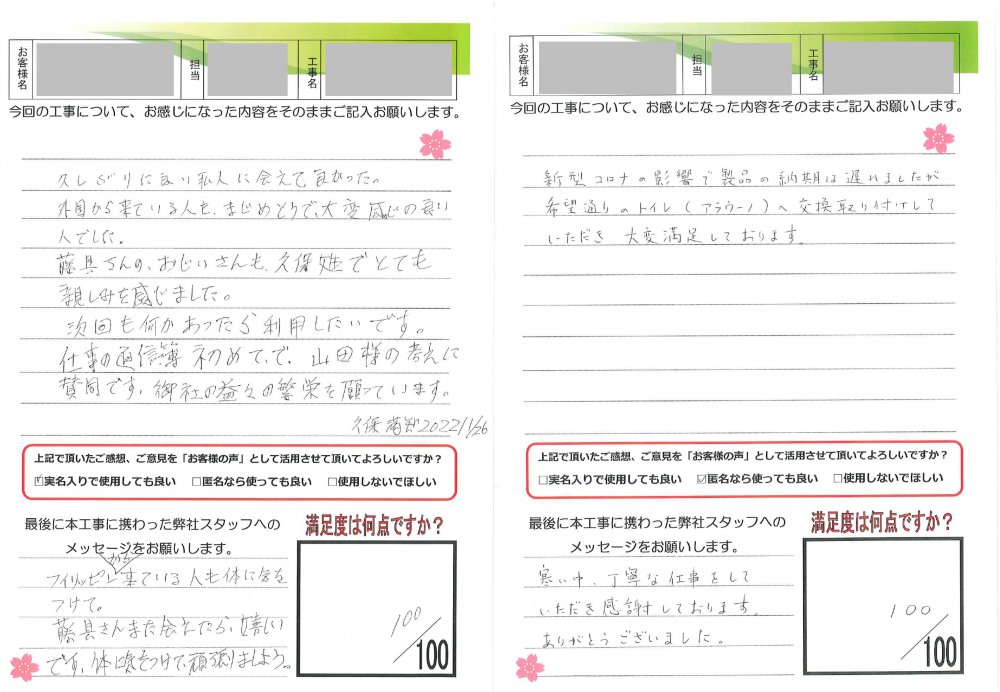 お客様名
担当
工事名
今回の工事について、お感じになった内容をそのままご記入お願いします。
久しぶりに良い職人に会えて良かった。
外国から来ている人も、まじめそうで、大変感じの良い
人でした。
藤具さんの、おじいさんも、久保姓でとても
親しみを感じました。
次回も何かあったら利用したいです。
仕事の通信簿初めてで、山田様の考えに
賛同です、御社の益々の繁栄を願っています。
久保 2022/1/26
上記で頂いたご感想、ご意見を「お客様の声」として活用させて頂いてよろしいですか？
☑実名入りで使用しても良い □匿名なら使っても良い □使用しないでほしい
最後に本工事に携わった弊社スタッフへの
メッセージをお願いします。
から
フィリッピン来ている人も体に気を
つけて。
藤具さんまた会えたら、嬉しい
です、体に気をつけて、頑張りましょう。
満足度は何点ですか？
100/100
お客様名
担当
工事名
今回の工事について、お感じになった内容をそのままご記入お願いします。
新型コロナの影響で製品の納期は遅れましたが
希望通りのトイレ（アラウーノ）へ交換取り付けして
いただき 大変満足しております。
上記で頂いたご感想、ご意見を「お客様の声」として活用させて頂いてよろしいですか？
□実名入りで使用しても良い ☑匿名なら使っても良い □使用しないでほしい
最後に本工事に携わった弊社スタッフへの
メッセージをお願いします。
寒い中、丁寧な仕事をして
いただき感謝しております。
ありがとうございました。
満足度は何点ですか？
100/100